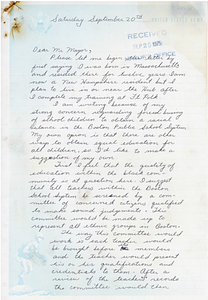 Saturday September 20th
RECEIVED
SEP 23 1975
MAYOR'S OFFICE
Dear Mr. Mayor,
Please let me begin this letter by
just saying I was born in Massachusetts
and resided there for twelve years. I am
now a New Hampshire resident but I
plan to live in or near the Hub after
I complete my training at Ft. Dodd
I am writing because of my
strong concern, regarding forced busing
of school children to obtain a racial
balance in the Boston Public School System.
My own opinion is that there are other
ways to obtain equal education for
all children, so I'd like to make a
suggestion of my own.
First, I feel that the quality of
education within the black com-
munity is at question here. I suggest
that all teachers within the Boston
school system be screened by a com-
mittee of concerned citizens qualified
to make sound judgements. This
committee would be made up to
represent all ethnic groups in Boston.
The way this committee would
work is each teacher would
be brought before the members
and the teacher would present
his or her qualifications and
credentials to them. After a
review of the teacher's records
the committee would then